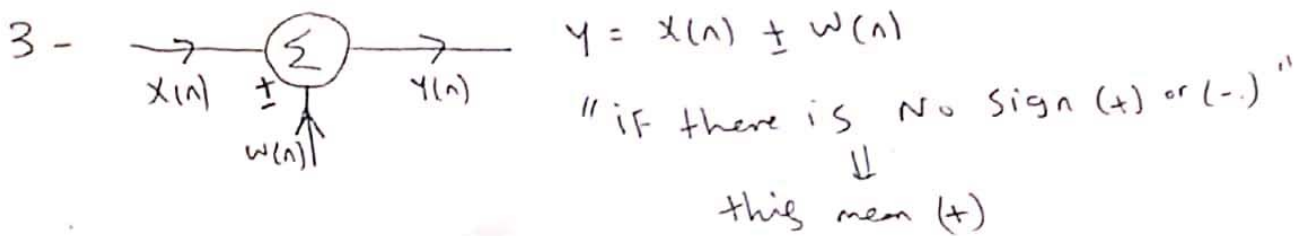 3 -
Σ
X(n)
±
Y(n)
W(n)
Y = X(n) ± W(n)
"if there is No sign (+) or (-)"
⇓
this mean (+)